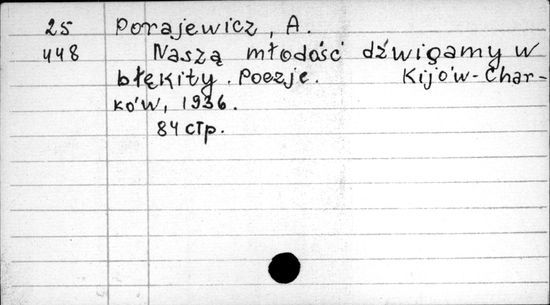 25 Porajewicz, A.
448 Naszą młodość dźwigamy w
błękity. Poezje. Kijów-Char-
ków, 1936.
84 стр.